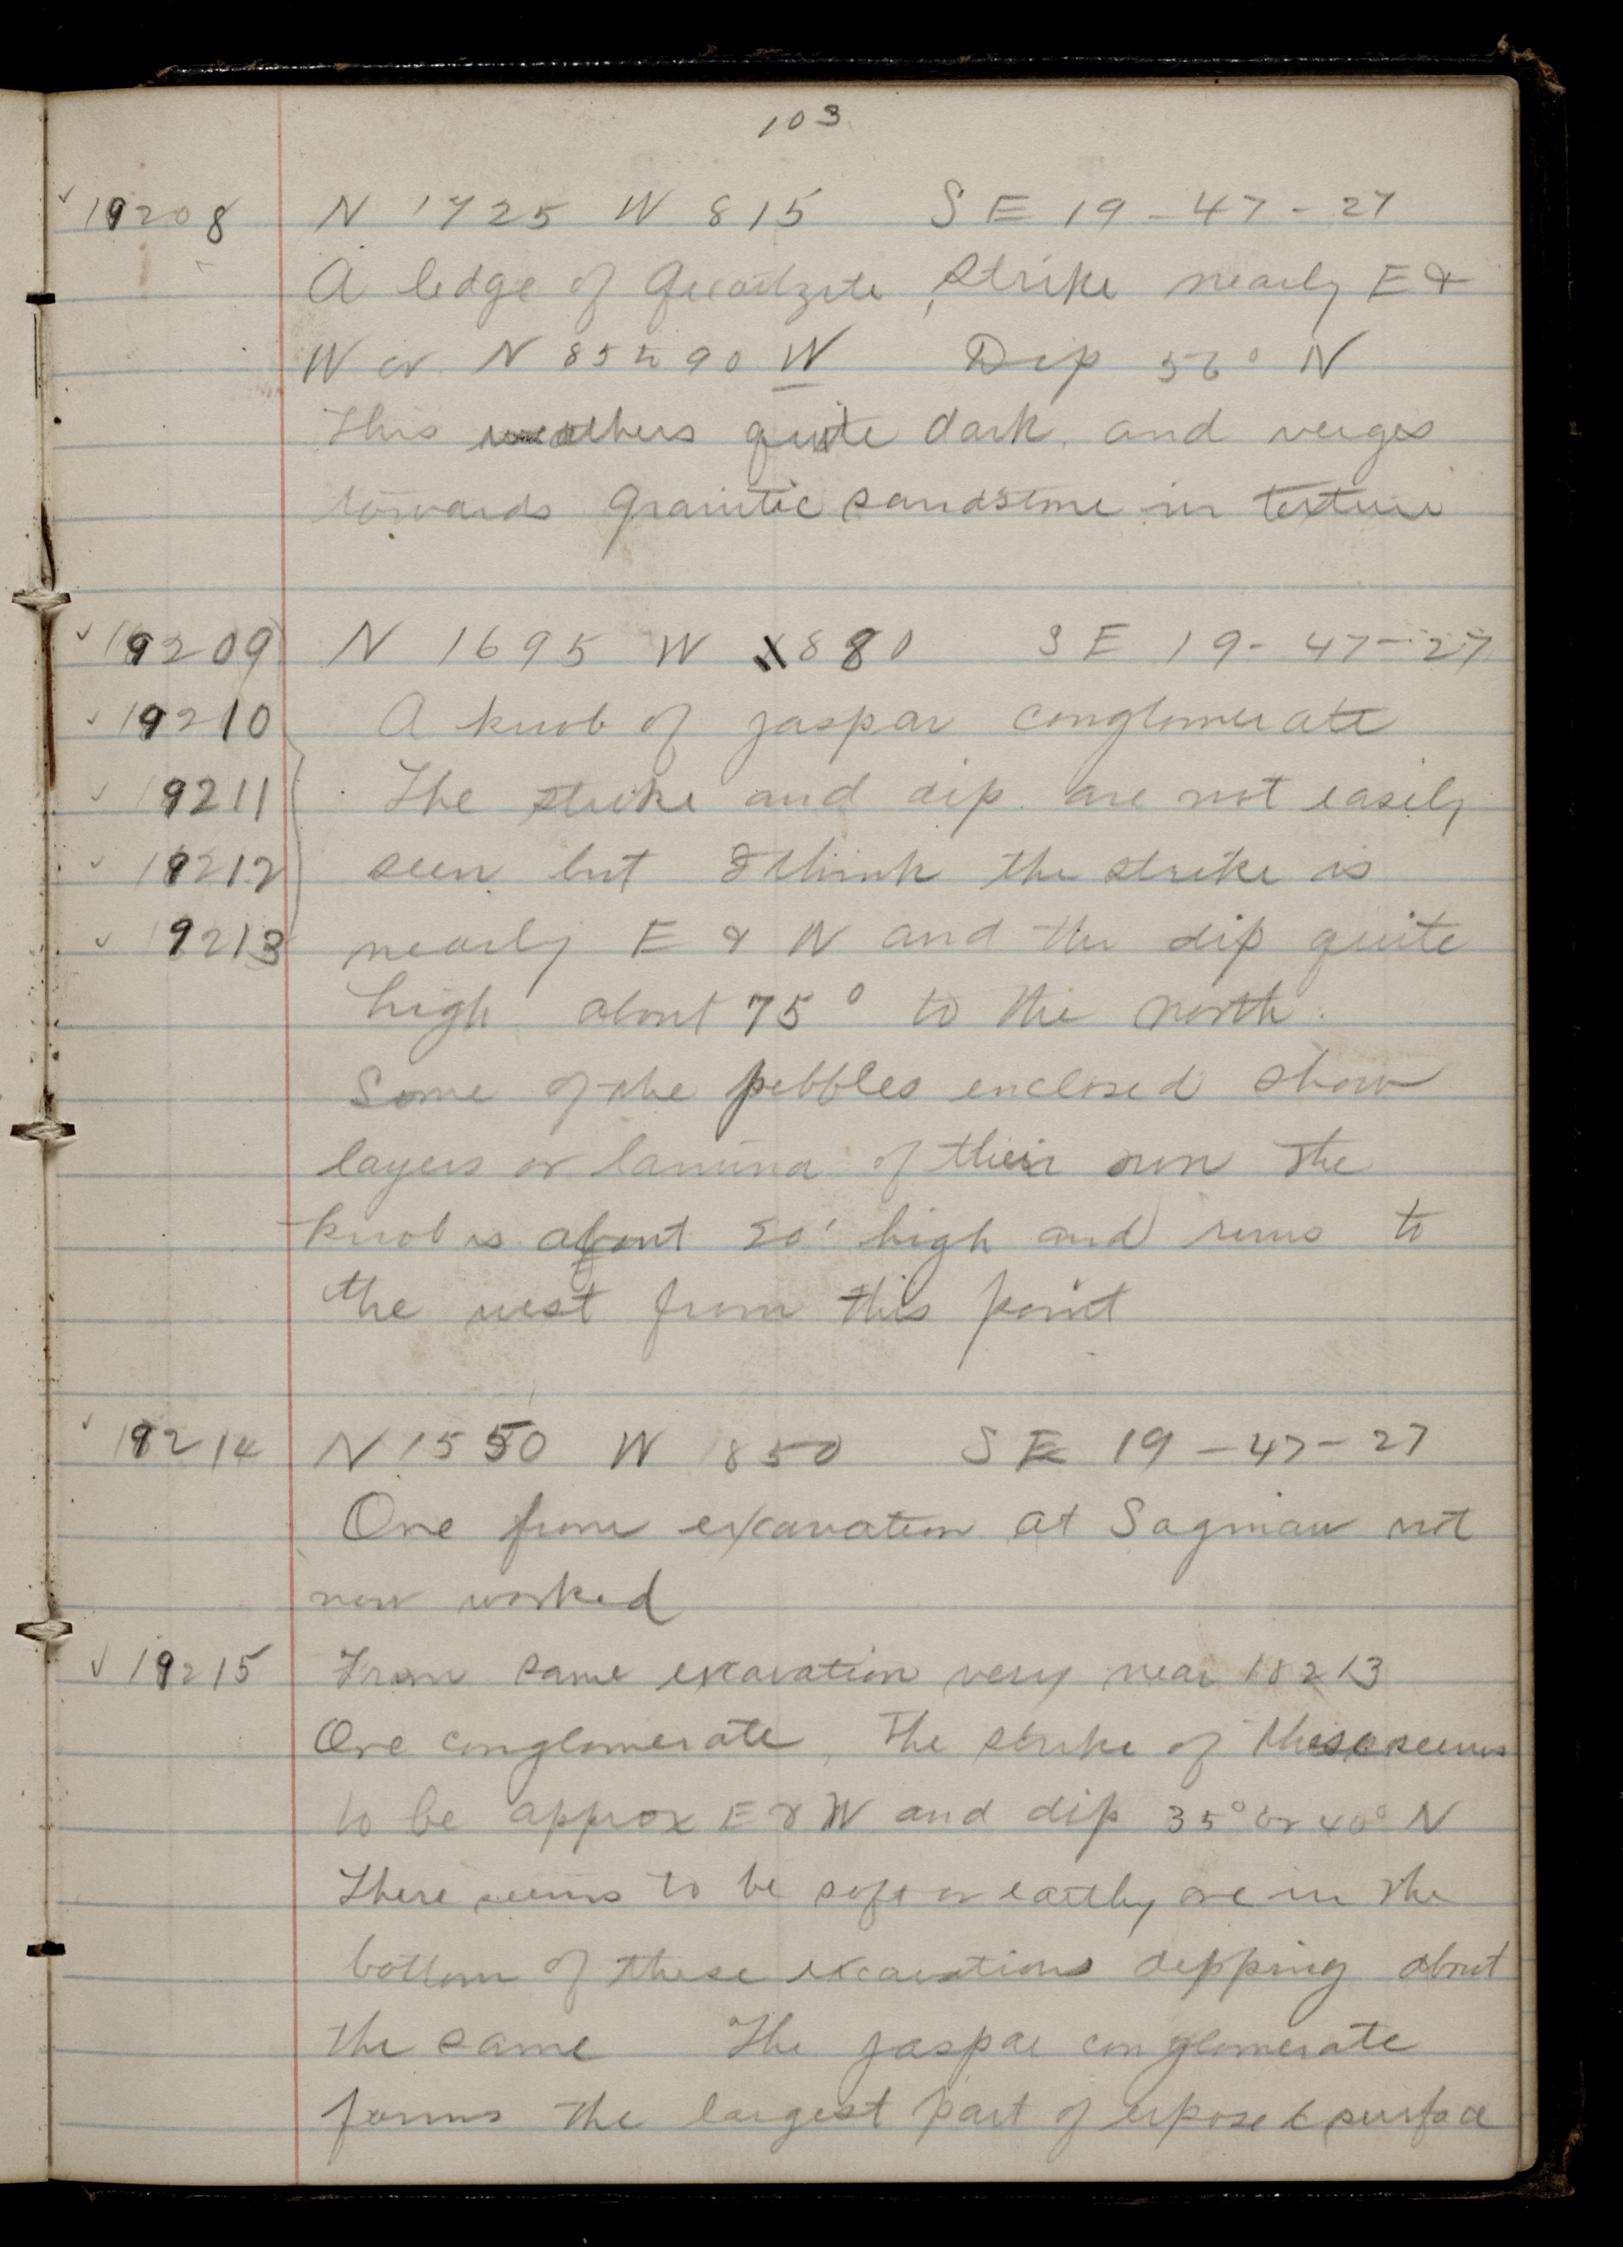 103
19208 N 1725 W 815 SE 19-47-27
A ledge of Quartzite, Strike nearly E &
W or N 85 to 90 W Dip 56° N
This weathers quite dark and verges
towards granitic sandstone in texture
19209 N 1695 W 880 SE 19-47-27
19210 A knob of jaspar conglomerate
19211 The strike and dip are not easily
19212 seen but I think the strike is
19213 nearly E & W and the dip quite
high about 75° to the north.
Some of the pebbles enclosed show
layers or lamina of their own The
knob is about 20' high and runs to
the west from this point
19214 N 1550 W 850 SE 19-47-27
Ore from excavation at Saginaw not
now worked
19215 From same excavation very near 18213
Ore conglomerate, The strike of these seems
to be approx E & W and dip 35° or 40° N
There seems to be soft or earthy ore in the
bottom of these excavations depping about
the same The jaspar conglomerate
forms the largest part of exposed surface